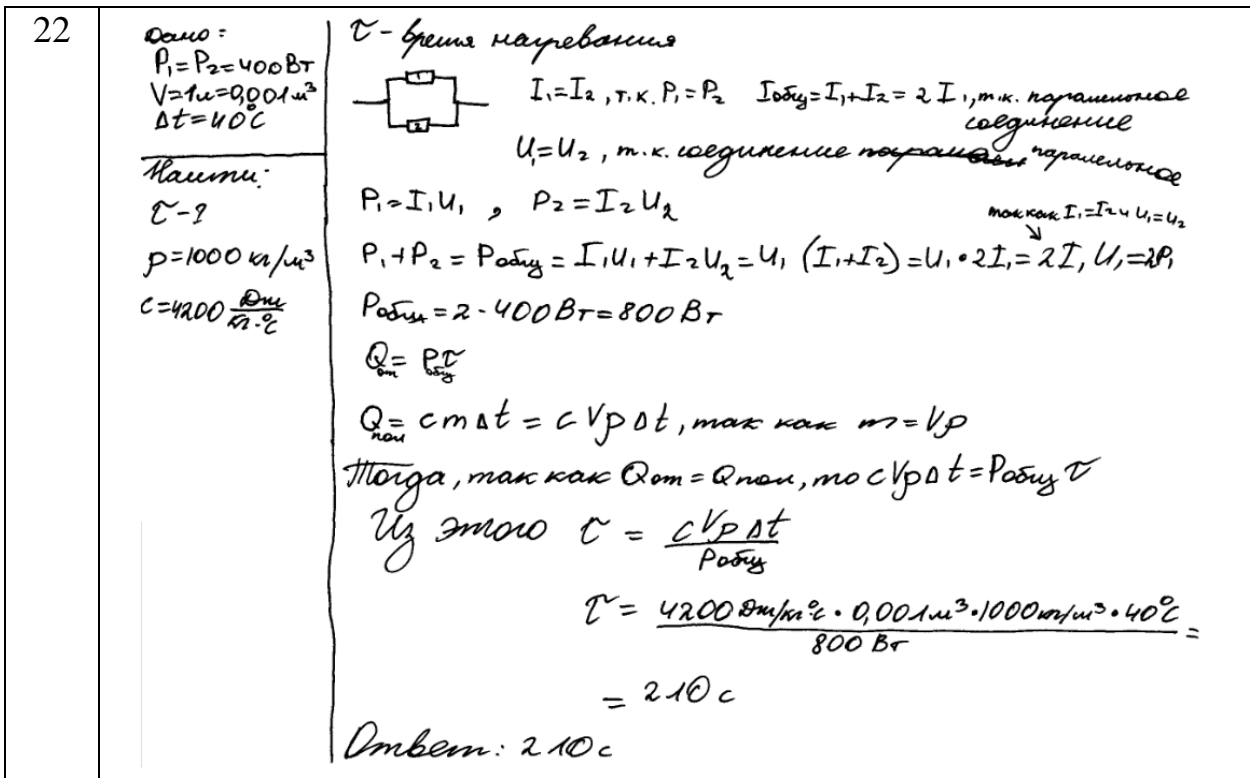 22
Дано:
P₁=P₂=400Вт
V=1л=0,001м³
Δt=40°C
Найти:
τ-?
ρ=1000 кг/м³
c=4200 Дж/кг·°C
τ - время нагревания
1
2
I₁=I₂, т.к. P₁=P₂ Iобщ=I₁+I₂=2I₁, т.к. паралельное
соединение
U₁=U₂, т.к. соединение паралельное
P₁=I₁U₁, P₂=I₂U₂
так как I₁=I₂ и U₁=U₂
P₁+P₂=Pобщ=I₁U₁+I₂U₂=U₁(I₁+I₂)=U₁·2I₁=2I₁U₁=2P₁
Pобщ=2·400Вт=800Вт
Qот=Pобщτ
Qпол=cmΔt=cVρΔt, так как m=Vρ
Тогда, так как Qот=Qпол, то cVρΔt=Pобщτ
Из этого τ=cVρΔt/Pобщ
τ=4200Дж/кг°C·0,001м³·1000кг/м³·40°C/800Вт=
=210с
Ответ: 210с